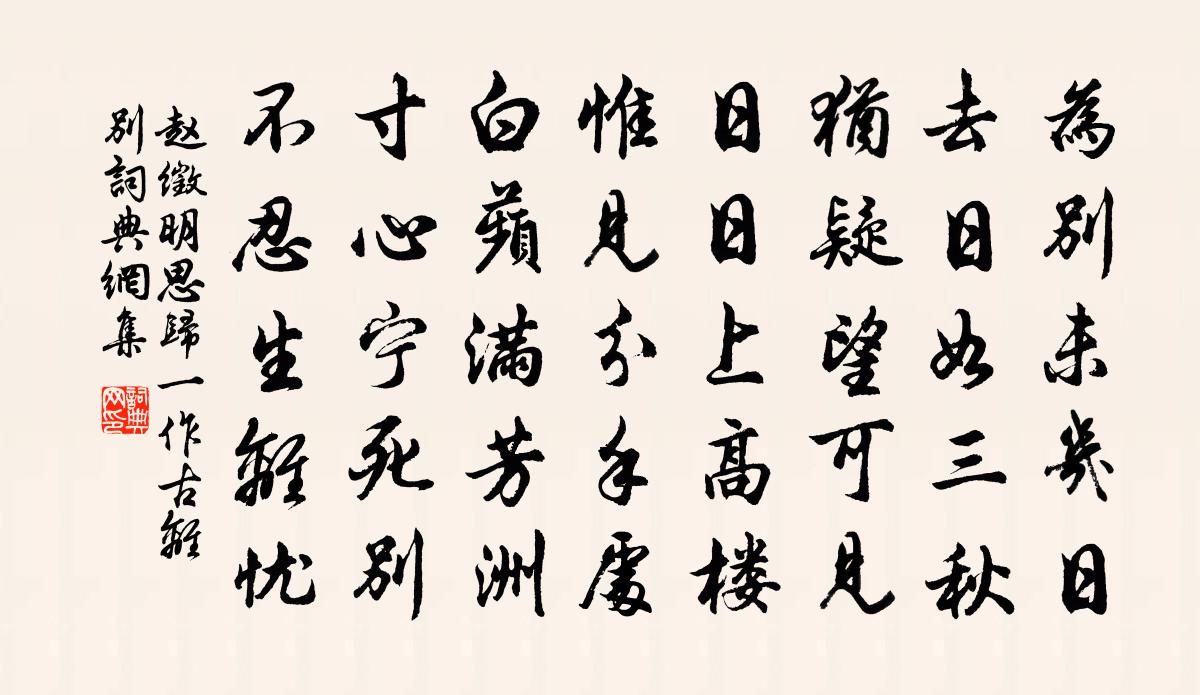 為別未幾日
去日如三秋
猶疑望可見
日日上高楼
惟見分手處
白蘋满芳洲
寸心宁死別
不忍生離忧
赵徵明思歸一作古離
別詞典網集
詞典
网印